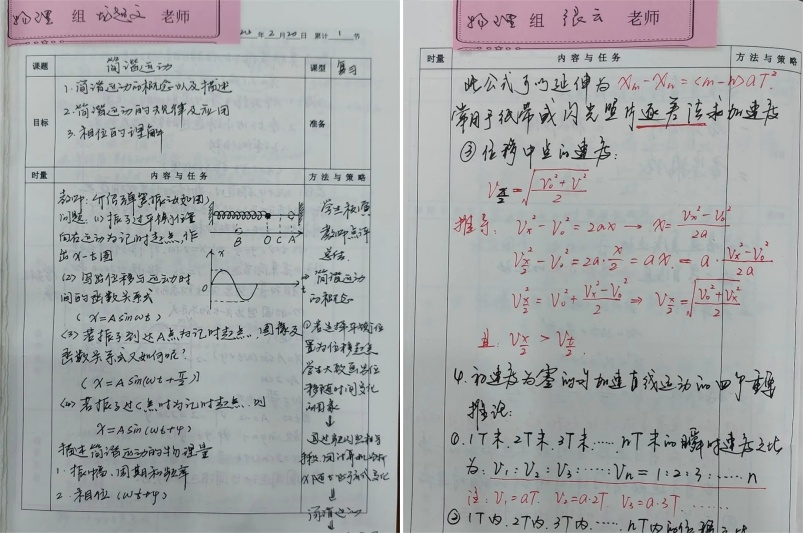 物理 组 老师
年 2 月 20 日 累计 1 节
课题 简谐运动 课型 复习
目标
1.简谐运动的概念以及描述
2.简谐运动的规律及应用
3.相位的理解
准备
时量 内容与任务 方法与策略
问题:(1)振子过平衡位置
向右运动为记时起点,作
出x-t图
(2)写出位移与运动时
间的函数关系式
(x=Asinωt)
(3)若振子到达A点为记时起点,图像及
函数关系式又如何呢?
(x=Asin(ωt+π/2))
(4)若振子过C点时为记时起点,则
x=Asin(ωt+φ)
描述简谐运动的物理量
1.振幅、周期和频率
2.相位(ωt+φ)
B O C A
x
0
t
教师点评
总结
简谐运动
的概念
简谐运动
物理 组 张云 老师
时量 内容与任务 方法与策略
此公式可以延伸为 Xm-Xn=(m-n)aT²
常用于纸带或闪光照片逐差法求加速度
③位移中点的速度:
Vx/2=√((V0²+V²)/2)
推导: Vx²-V0²=2ax → x=(Vx²-V0²)/2a
Vx/2²-V0²=2a·x/2=ax=a·(Vx²-V0²)/2a
Vx/2²=V0²+(Vx²-V0²)/2 ⇒ Vx/2=√((V0²+Vx²)/2)
且: Vx/2>Vt/2
4.初速度为零的匀加速直线运动的四个重要
推论:
①.1T末、2T末、3T末……nT末的瞬时速度之比
为:V1:V2:V3:……Vn=1:2:3:……n
注:V1=aT. V2=a·2T. V3=a·3T. ……
②1T内、2T内、3T内、……nT内的位移之比